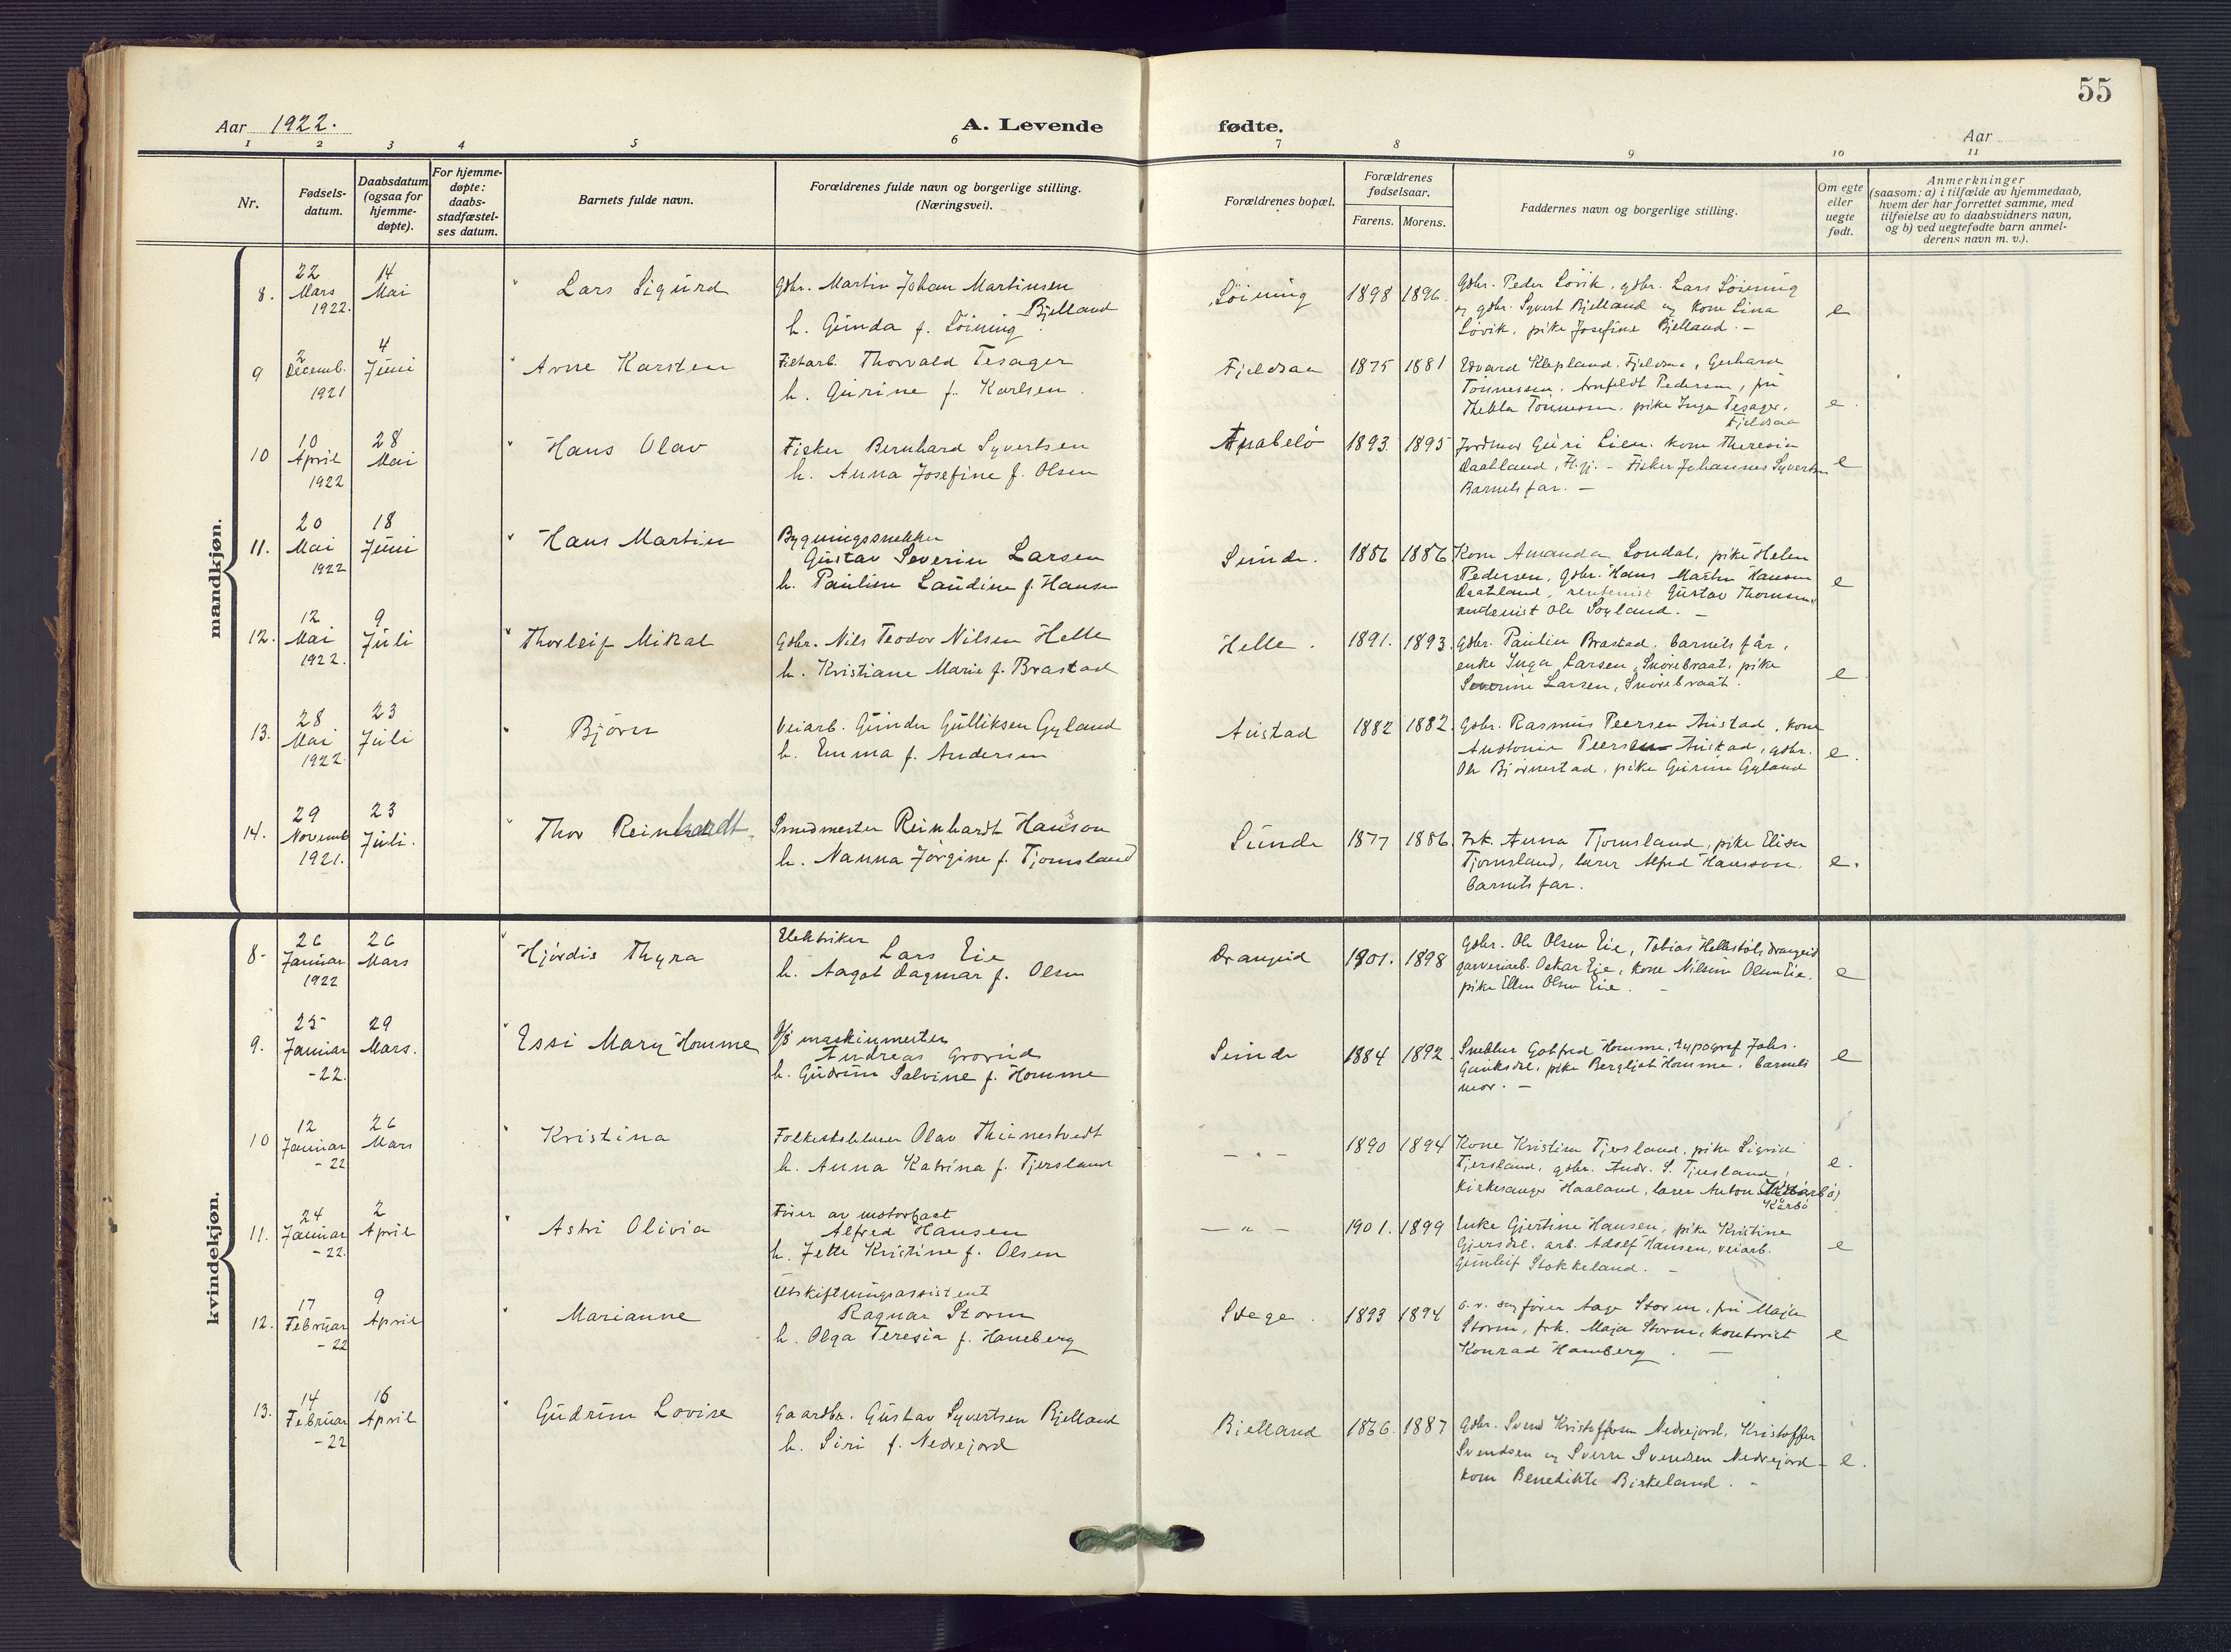 55
Aar 1922.
A. Levende fødte.
Aar
1 2 3 4 5 6 7 8 9 10 11
Nr.
Fødsels-
datum.
Daabsdatum
(ogsaa for
hjemme-
døpte).
For hjemme-
døpte:
daabs-
stadfæstel-
ses datum.
Barnets fulde navn.
Forældrenes fulde navn og borgerlige stilling.
(Næringsvei).
Forældrenes bopæl.
Forældrenes
fødselsaar.
Farens. Morens.
Faddernes navn og borgerlige stilling.
Om egte
eller
uegte
født.
Anmerkninger
(saasom: a) i tilfælde av hjemmedaab,
hvem der har forrettet samme, med
tilføielse av to daabsvidners navn,
og b) ved uegtefødte barn anmel-
derens navn m. v.).
mandkjøn.
8.
22
Mars
1922.
14
Mai
Lars Sigurd
Gbr. Martin Johan Martinsen
Bjelland
h. Gunda f. Löining
Löining
1898 1896.
Gbr. Peder Lövik, gbr. Lars Löining
og gbr. Syvert Bjelland og kone Lina
Lövik, pike Josefine Bjelland. -
e
9
2
Decemb.
1921
4
Juni
Arne Karsten
Thorvald Tesager
h. Gurine f. Karlsen.
Fjeldsaa
1875 1881
Edvard Klepland, Fjeldsaa, Gerhard
Tönnessen, Arnfeldt Pedersen, fru
Thekla Tönnessen, pike Inga Tesager.
Fjeldsaa
e.
10
10
April
1922
28
Mai
Hans Olav
Fisker Bernhard Syvertsen
h. Anna Josefine f. Olsen
Anabelö
1893. 1895
Jordmor Guri Lien. kone Theresia
Daatland, - Fisker Johannes Syvertsen
Barnets far. -
e
11.
20
Mai
1922
18
Juni
Hans Martin
Bygningssnekker
Gustav Severin Larsen
h. Pauline Laudine f. Hansen
Sunde.
1886 1886
Kone Amanda Londal, pike Helen
Pedersen, gbr. Hans Martin Hansen
Daatland, rentenist Gustav Thomsen,
rentenist Ole Soyland. -
e
12.
12
Mai
1922.
9
Juli
Thorleif Mikal
Gbr. Nils Teodor Nilsen Helle
h. Kristiane Marie f. Brastad
Helle.
1891. 1893.
Gbr. Paulin Brastad, barnets får,
enke Inga Larsen, Snörebraat, pike
Severine Larsen, Snörebraat.
e
13.
28
Mai
1922.
23
Juli
Björn
Veiarb. Gunder Gulliksen Gyland
h. Emma f. Andersen
Austad
1882 1882.
Gbr. Rasmus Peersen Austad, kone
Andonie Peersen Austad, gbr.
Ole Björnestad, pike Gurine Gyland
e.
14.
29
Novemb
1921.
23
Juli.
Thor Reinhardt
Smedmester Reinhardt Hansson
h. Nanna Jörgine f. Tjomsland
Sunde
1877 1886.
Frk. Anna Tjomsland, pike Elise
Tjomsland, lærer Alfred Hansson,
barnets far.
e.
kvindekjøn.
8-
26
Januar
1922
26
Mars
Hjördis Thyra
Elektriker
Lars Eie
h. Aagot Dagmar f. Olsen
Drangeid
1901. 1898
Gbr. Ole Olsen Eie, Tobias Hellestöl, Drangeid
garveriarb. Oskar Eie, kone Nilsine Olsen Eie,
pike Ellen Olsen Eie. -
e
9.
25
Januar
-22.
29
Mars.
Essi Mary Homme
maskinmester
Andreas Grovnes
h. Gudrun Salvine f. Homme
Sunde
1884 1892.
Snekker Gotfred Homme, typograf Johs.
pike Bergljot Homme, barnets
mor. -
e
10
12
Januar
-22
26
Mars
Kristina
Folkeskolelærer Olav Thinnestvedt
h. Anna Katrina f. Tjersland
- " -
1890 1894
Kone Kristine Tjersland, pike Sigrid
Tjersland, gbr. Andr. S. Tjersland,
kirkesanger Haaland, lærer Anton
Kårbö
e.
11.
24
Januar
-22.
2
April
Astri Olivia
Förer av motorbaat
Alfred Hansen
h. Jette Kristine f. Olsen
- " -
1901. 1899
Enke Gjertine Hansen, pike Kristine
Gjersdal, arb. Adolf Hansen, veiarb.
Gunleif Stokkeland. -
e
12.
17
Februar
-22
9
April
Marianne
Utskiftningsassistent
Ragnar Storm
h. Olga Teresia f. Haneberg
Stege.
1893 1894
o.r. sagförer Aage Storm, fru Maja
Storm, frk. Maja Storm, kontorist
Konrad Hamberg. -
e
13.
14
Februar
-22
16
April
Gudrun Lovise
Gaardbr. Gustav Syvertsen Bjelland
h. Siri f. Nedrejord
Bjelland
1866. 1887
Gbr. Svend Kristoffersen Nedrejord, Kristoffer
Svendsen og Sverre Svendsen Nedrejord -
kone Benedikte Birkeland. -
e.